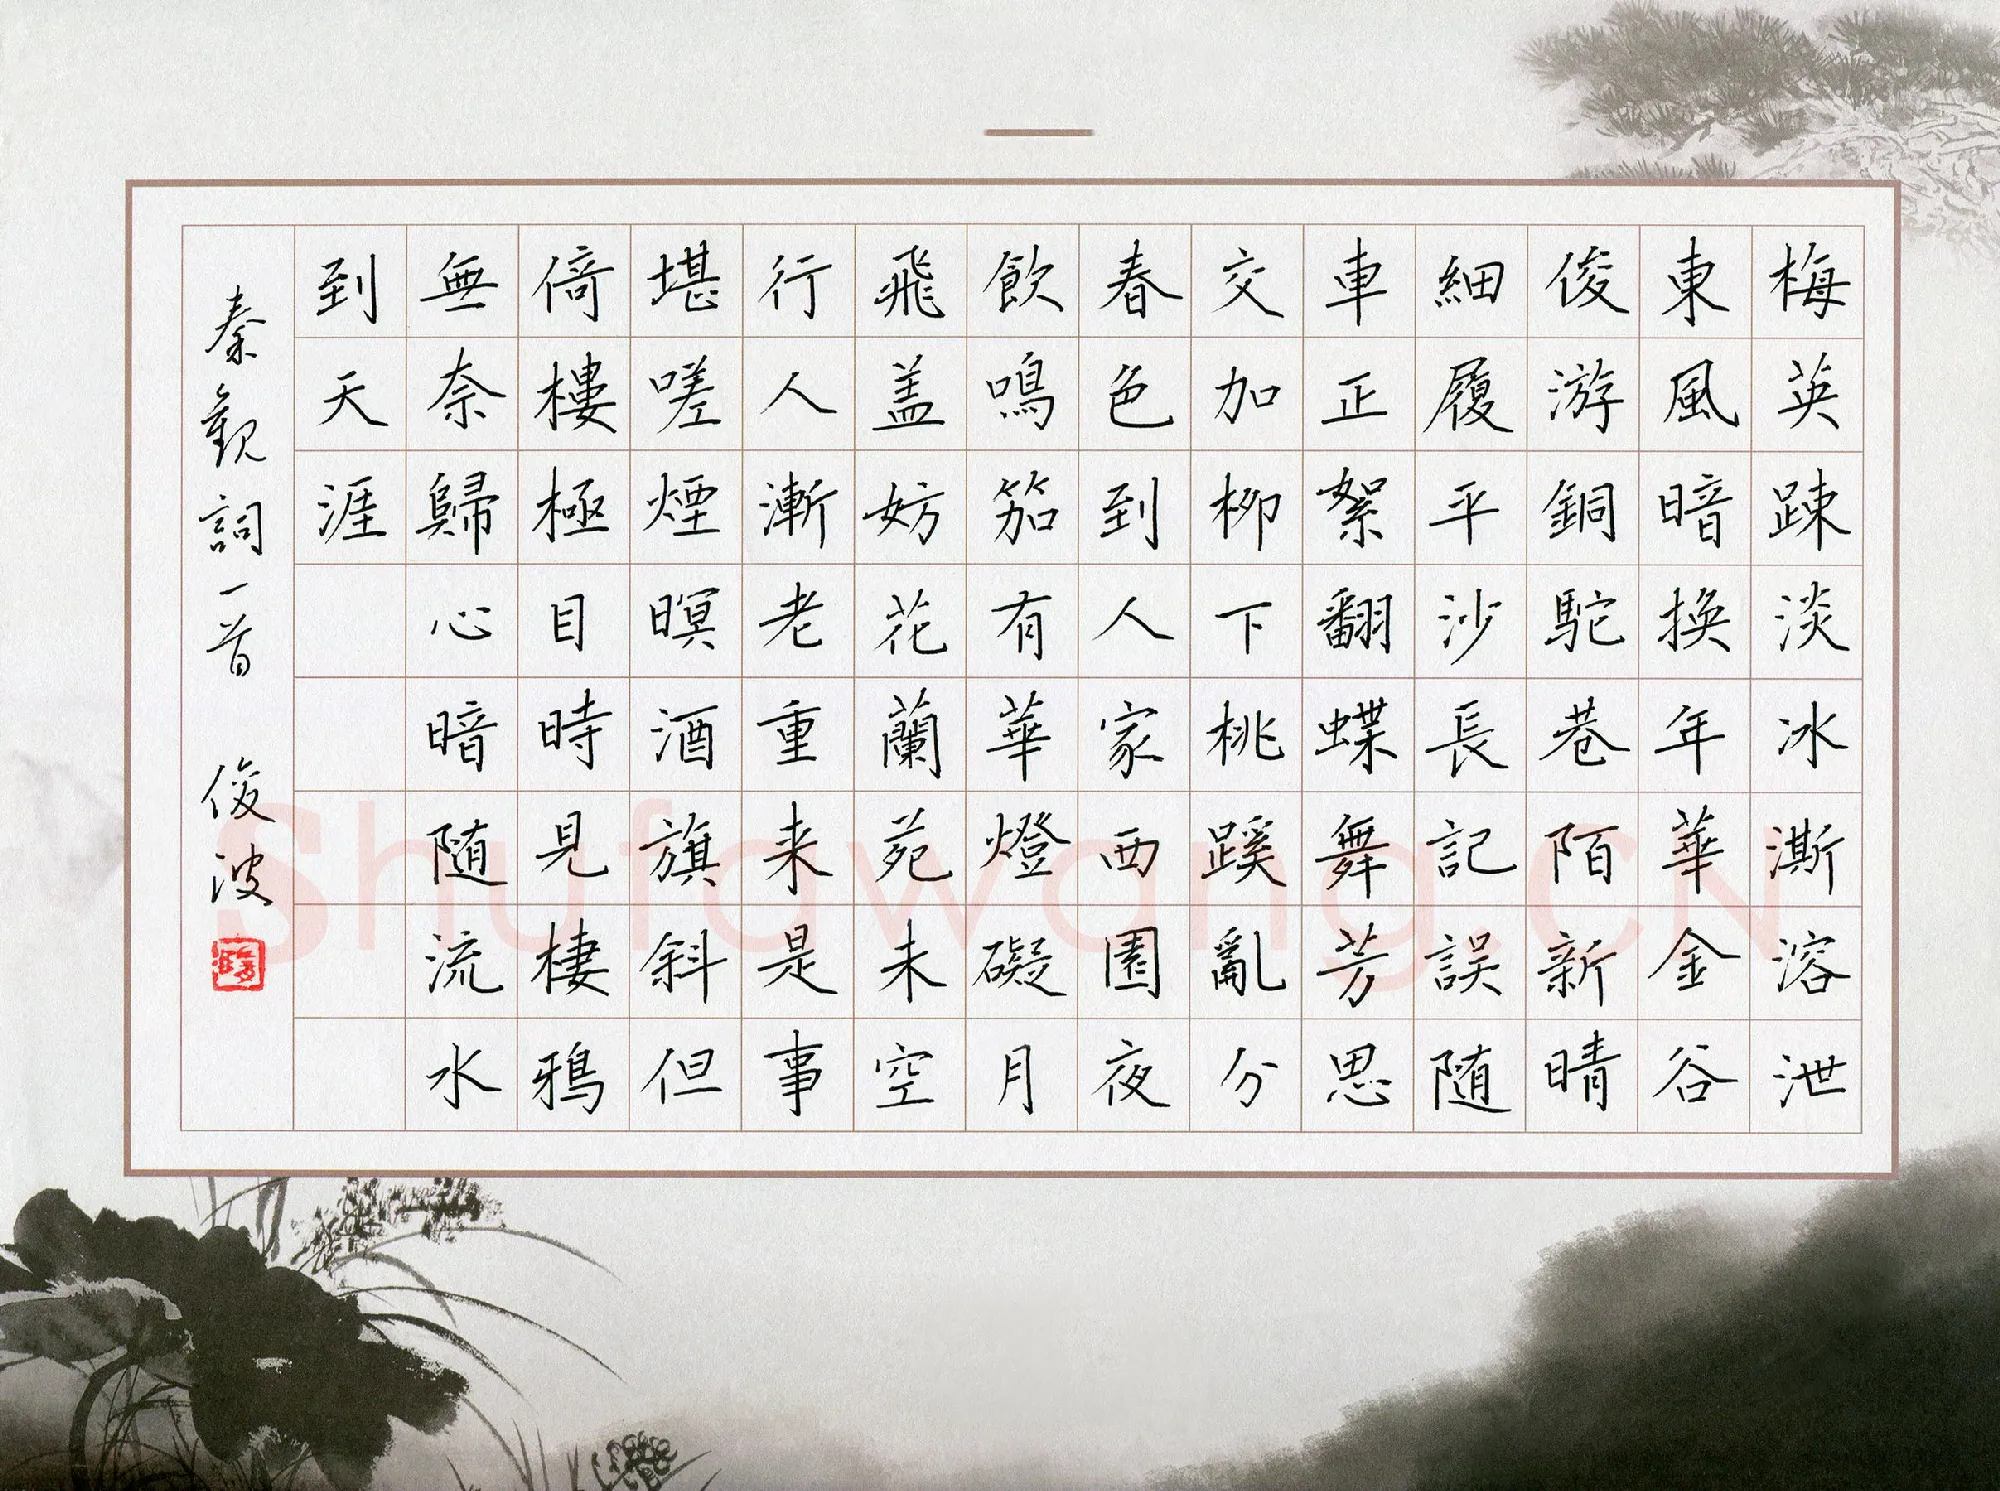 梅英疎淡冰澌溶泄
東風暗換年華金谷
俊游銅駝巷陌新晴
細履平沙長記誤随
車正絮翻蝶舞芳思
交加柳下桃蹊亂分
春色到人家西園夜
飲鳴笳有華燈礙月
飛盖妨花蘭苑未空
行人漸老重来是事
堪嗟煙暝酒旗斜但
倚樓極目時見棲鴉
無奈歸心暗随流水
到天涯
秦觀詞一首 俊波
Shufawang.CN